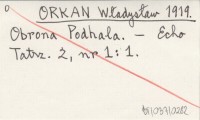 ORKAN Władysław 1919.
Obrona Podhala. — Echo
Tatrz. 2, nr 1: 1.